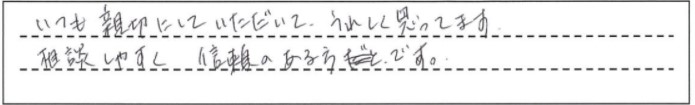 いつも親切にしていただいて、うれしく思ってます。
相談しやすく 信頼のある方です。